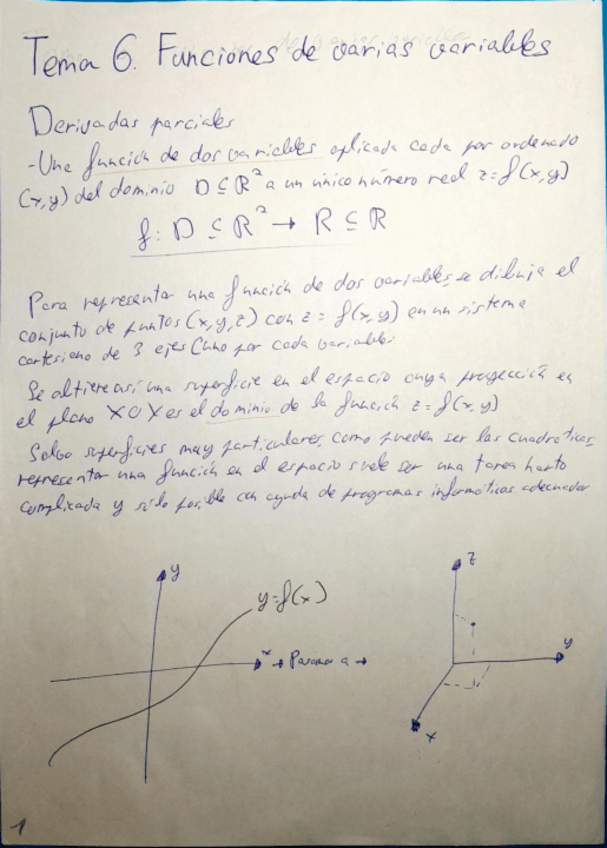 Tema 6. Funciones de varias variables
Derivadas parciales
-Una función de dos variables aplicada cada par ordenado
(x,y) del dominio D ⊆ R² a un único número real z=f(x,y)
f: D ⊆ R² → R ⊆ R
Para representar una función de dos variables, se dibuja el
conjunto de puntos (x,y,z) con z = f(x,y) en un sistema
cartesiano de 3 ejes (uno por cada variable).
Se obtiene así una superficie en el espacio cuya proyección en
el plano XOY es el dominio de la función z=f(x,y)
Salvo superficies muy particulares, como pueden ser las cuadráticas,
representar una función en el espacio suele ser una tarea harto
complicada y sólo posible con ayuda de programas informáticos adecuados
y
y=f(x)
x → Pasamos a →
z
y
x
1